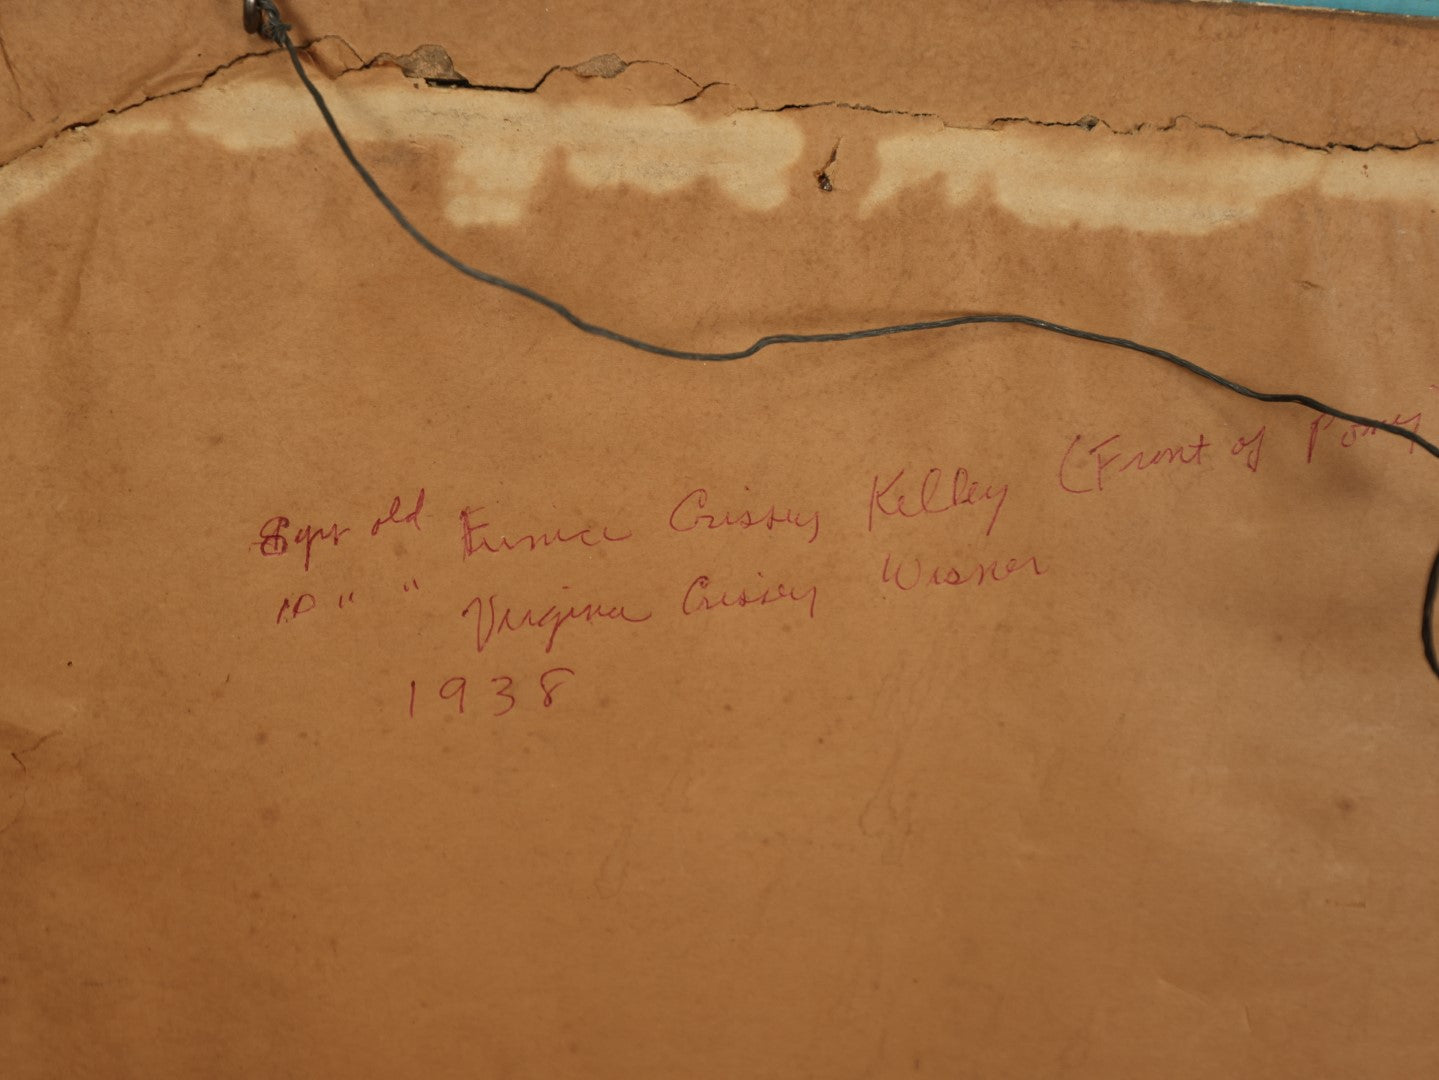 8 yrs old Eunice Crissey Kelley (Front of Pony
10 " " Virginia Crissey Wisner
1938